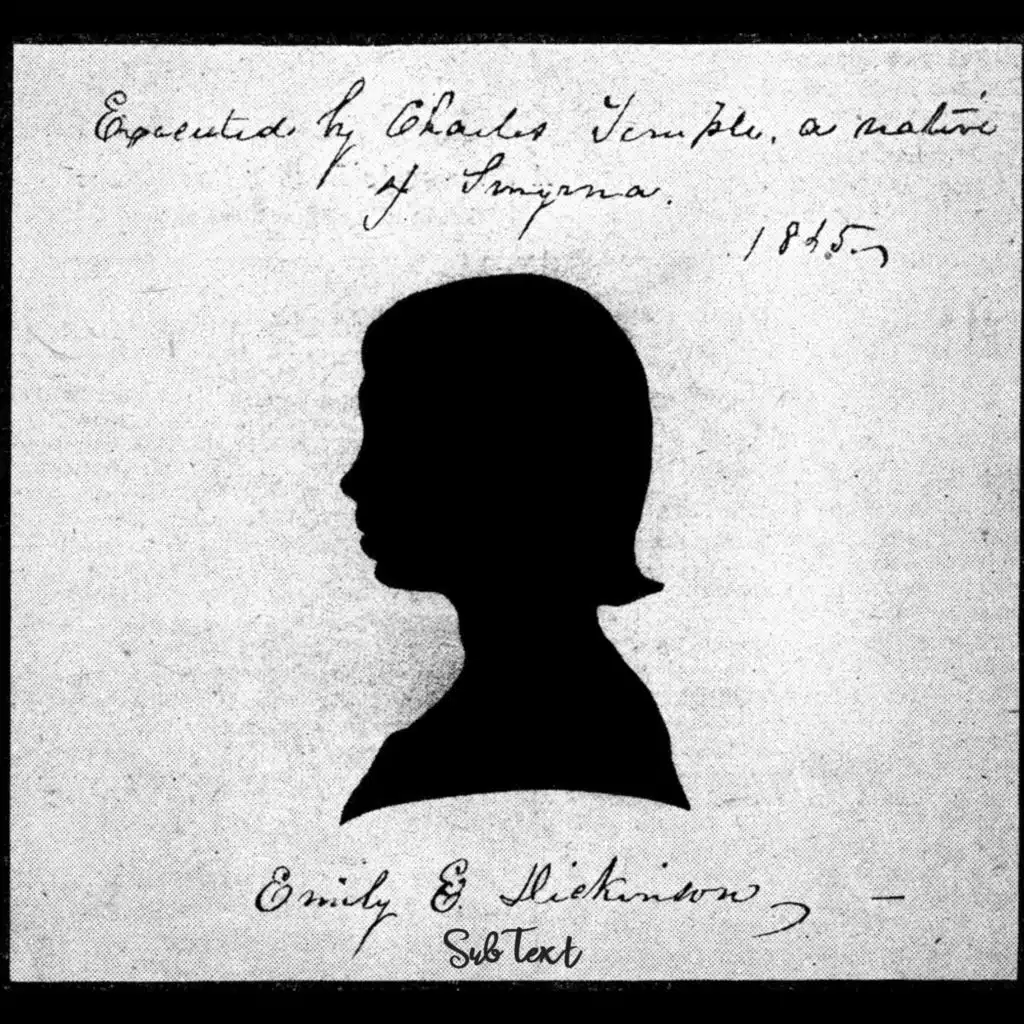 Executed by Charles Temple, a native
of Smyrna.
1845.
Emily E. Dickinson
SubText